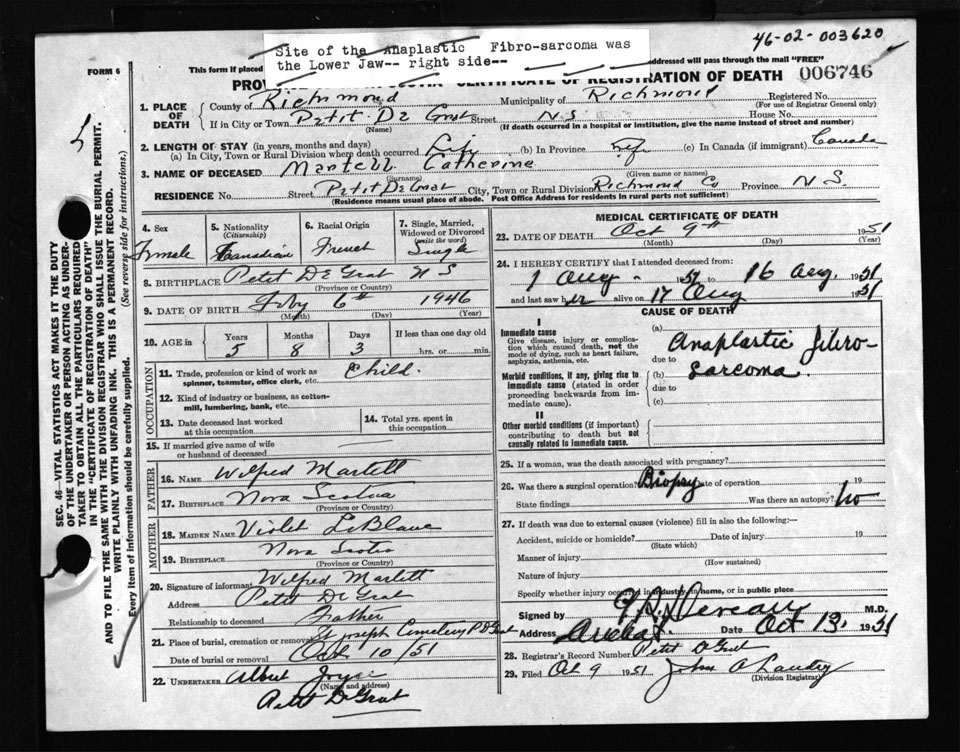 46-02-003620
Site of the Anaplastic Fibro-sarcoma was
the Lower Jaw-- right side--
FORM 6
This form if placed
addressed will pass through the mail "FREE"
CERTIFICATE OF REGISTRATION OF DEATH 006746
1. PLACE OF DEATH
County of Richmond Municipality of Richmond Registered No.
(For use of Registrar General only)
If in City or Town Petit De Grat Street N S House No.
(Name) (If death occurred in a hospital or institution, give the name instead of street and number)
2. LENGTH OF STAY (in years, months and days)
(a) In City, Town or Rural Division where death occurred Life (b) In Province Life (c) In Canada (if immigrant) Canada
3. NAME OF DECEASED Martell Catherine
(Surname) (Given name or names)
RESIDENCE No. Street Petit De Grat City, Town or Rural Division Richmond Co Province N S.
(Residence means usual place of abode. Post Office Address for residents in rural parts not sufficient)
4. Sex
Female
5. Nationality
(Citizenship)
Canadian
6. Racial Origin
French
7. Single, Married,
Widowed or Divorced
(write the word)
Single
8. BIRTHPLACE Petit De Grat N S
(Province or Country)
9. DATE OF BIRTH Feby 6th 1946
(Month) (Day) (Year)
10. AGE in
Years Months Days If less than one day old
5 8 3 hrs. or min.
OCCUPATION
11. Trade, profession or kind of work as Child.
spinner, teamster, office clerk, etc.
12. Kind of industry or business, as cotton-
mill, lumbering, bank, etc.
13. Date deceased last worked
at this occupation
14. Total yrs. spent in
this occupation
15. If married give name of wife
or husband of deceased
FATHER
16. NAME Wilfred Martell
17. BIRTHPLACE Nova Scotia
(Province or Country)
MOTHER
18. MAIDEN NAME Violet LeBlanc
19. BIRTHPLACE Nova Scotia
(Province or Country)
20. Signature of informant Wilfred Martell
Address Petit De Grat
Relationship to deceased Father
21. Place of burial, cremation or removal St Joseph Cemetery P.D Grat
Date of burial or removal Oct 10/51
22. UNDERTAKER Albert Joyce
(Name and address)
Petit De Grat
MEDICAL CERTIFICATE OF DEATH
23. DATE OF DEATH Oct 9th 1951
(Month) (Day) (Year)
24. I HEREBY CERTIFY that I attended deceased from:
1 Aug. 1951 to 16 Aug. 1951
and last saw her alive on 17 Aug 1951
CAUSE OF DEATH
I
Immediate cause
Give disease, injury or complica-
tion which caused death, not the
mode of dying, such as heart failure,
asphyxia, asthenia, etc.
Morbid conditions, if any, giving rise to
immediate cause (stated in order
proceeding backwards from im-
mediate cause).
II
Other morbid conditions (if important)
contributing to death but not
causally related to immediate cause.
(a) Anaplastic Fibro-
due to
(b) sarcoma
due to
(c)
25. If a woman, was the death associated with pregnancy?
26. Was there a surgical operation? Biopsy Date of operation 19
State findings Was there an autopsy? no
27. If death was due to external causes (violence) fill in also the following:—
Accident, suicide or homicide? Date of injury 19
(State which)
Manner of injury
(How sustained)
Nature of injury
Specify whether injury occurred in industry, in home, or in public place
Signed by M.D.
Address Arichat. Date Oct 13, 1951
28. Registrar's Record Number Petit De Grat
29. Filed Oct 9 1951 John A Landry
(Division Registrar)
SEC. 46—VITAL STATISTICS ACT MAKES IT THE DUTY
OF THE UNDERTAKER OR PERSON ACTING AS UNDER-
TAKER TO OBTAIN ALL THE PARTICULARS REQUIRED
IN THE "CERTIFICATE OF REGISTRATION OF DEATH"
AND TO FILE THE SAME WITH THE DIVISION REGISTRAR WHO SHALL ISSUE THE BURIAL PERMIT.
WRITE PLAINLY WITH UNFADING INK. THIS IS A PERMANENT RECORD.
Every item of information should be carefully supplied. (See reverse side for instructions.)